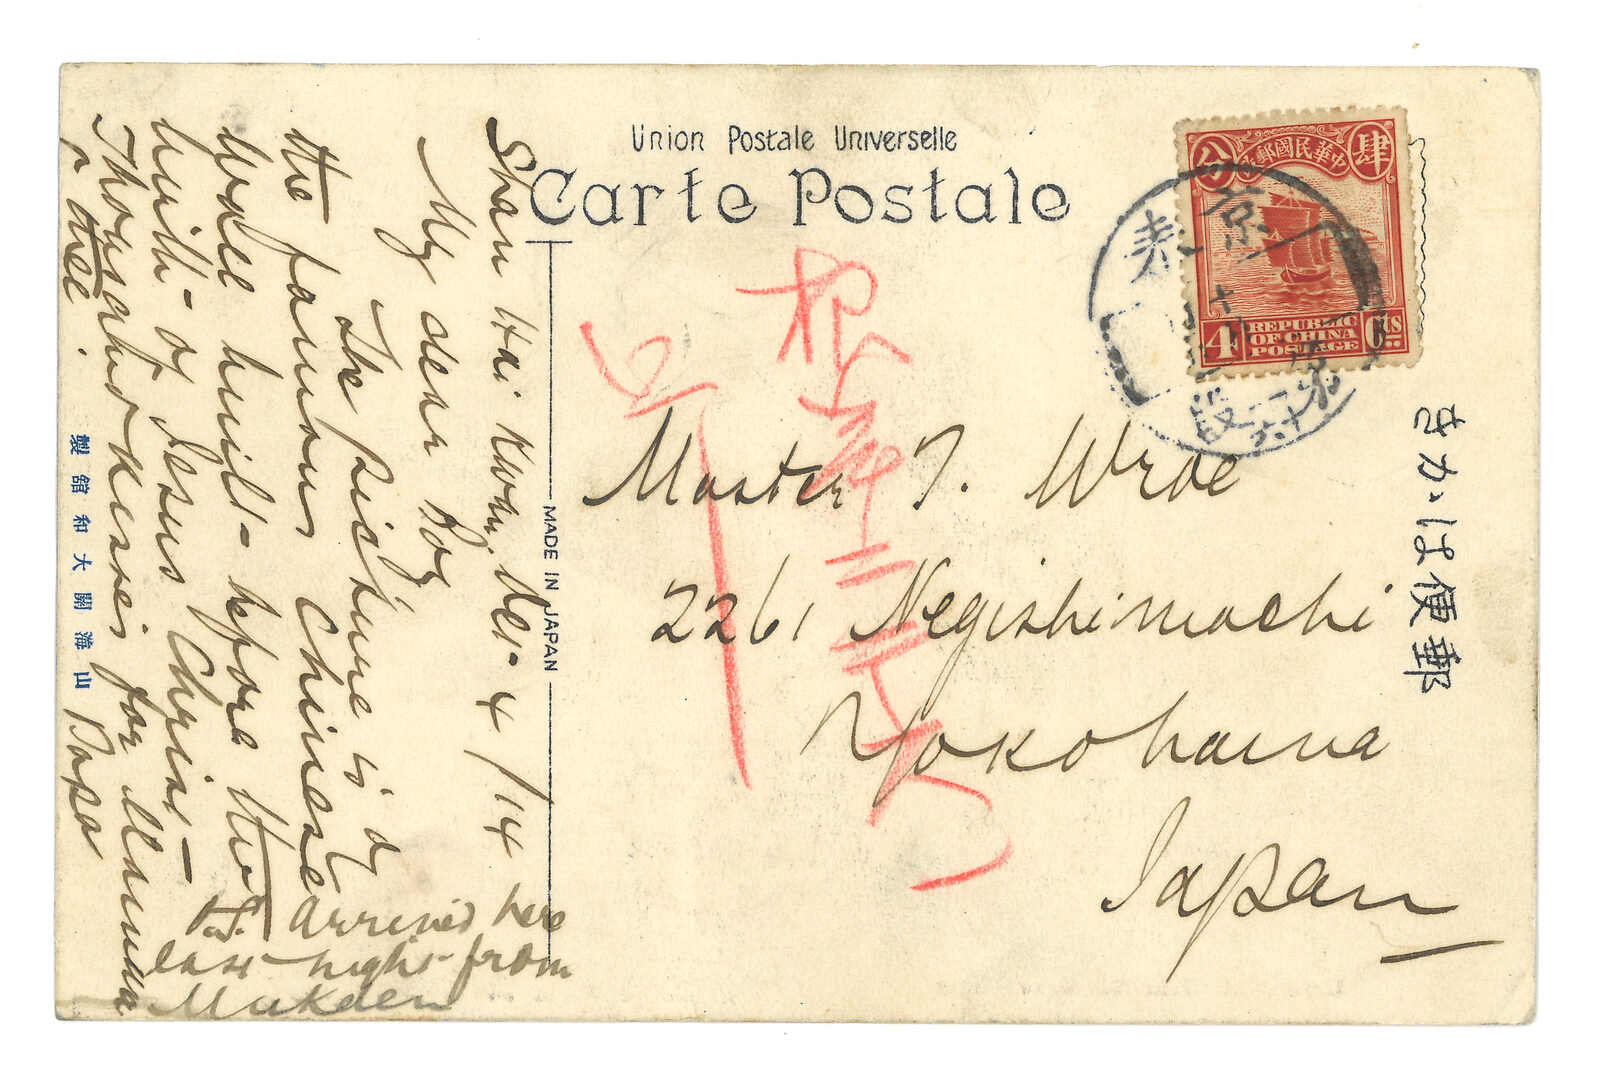 Union Postale Universelle
Carte Postale
中華民國郵政
肆
分
4 Cts
REPUBLIC
OF CHINA
POSTAGE
きかは便郵
MADE IN JAPAN
山海關大和舘製
Shan Hai Kwan, Oct 4/14
My dear Boy
The picture is of
the famous Chinese
Wall built before the
birth of Jesus Christ
Thousand kisses for Mamma
& thee. Papa
P.S. Arrived here
last night from
Mukden
Master T. Wroe
2261 Negishimachi
Yokohama
Japan
根岸
二二六一